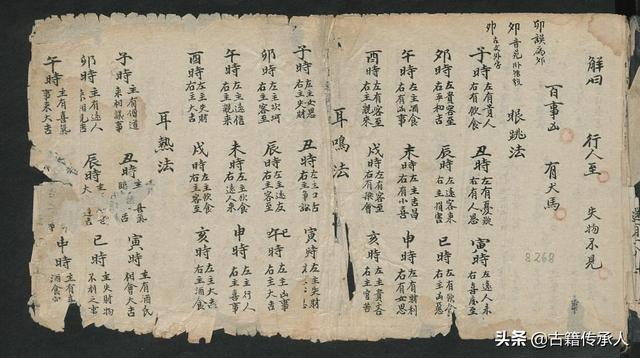 解曰 行人至 失物不見
百事凶 有犬馬
卯誤為夘
眼跳法
子時 左有貴人 右有飲食 丑時 左有憂疑 右有人思 寅時 左遠人來 右喜慶至
夘時 左貴客至 右平和吉 辰時 左遠客來 右主損害 巳時 左有飲食 右主凶惡
午時 左主酒食 右有凶事 未時 左主吉昌 右有小喜 申時 左有財利 右有女思
酉時 左有客至 右主親來 戌時 左有客至 右有聚會 亥時 左主貴客 右主官
耳鳴法
子時 左主女思 右主失財 丑時 左主口 右主事訟 寅時 左主失財 右主
卯時 左主坎坷 右主客至 辰時 左主遠友 右主客至 時 左主凶事 右主大吉
午時 左主遠信 右主親來 未時 左主飲食 右遠人來 申時 左主行人 右主喜事
酉時 左主失財 右主大吉 戌時 左主飲食 右主客至 亥時 左主大吉 右主酒食
耳熱法
子時 主有僧道 來相謀事 丑時 主 喜 寅時 主有酒 相會大吉
卯時 主有遠人 來相見吉 辰時 主 大 巳時 主失財物 不利之事
午時 主有喜慶 事來大吉 申時 主有喜 酒食
8268
头条 @古籍传承人